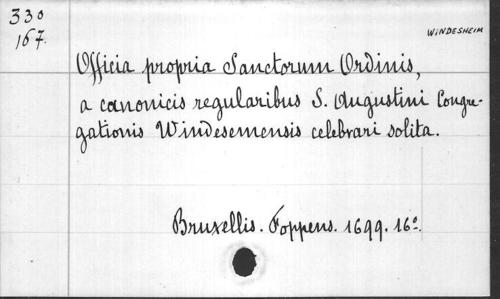 330
167.
WINDESHEIM
Officia propria Sanctorum Ordinis,
a canonicis regularibus S. Augustini Congre-
gationis Windesemensis celebrari solita.
Bruxellis. Foppens. 1699. 16°.